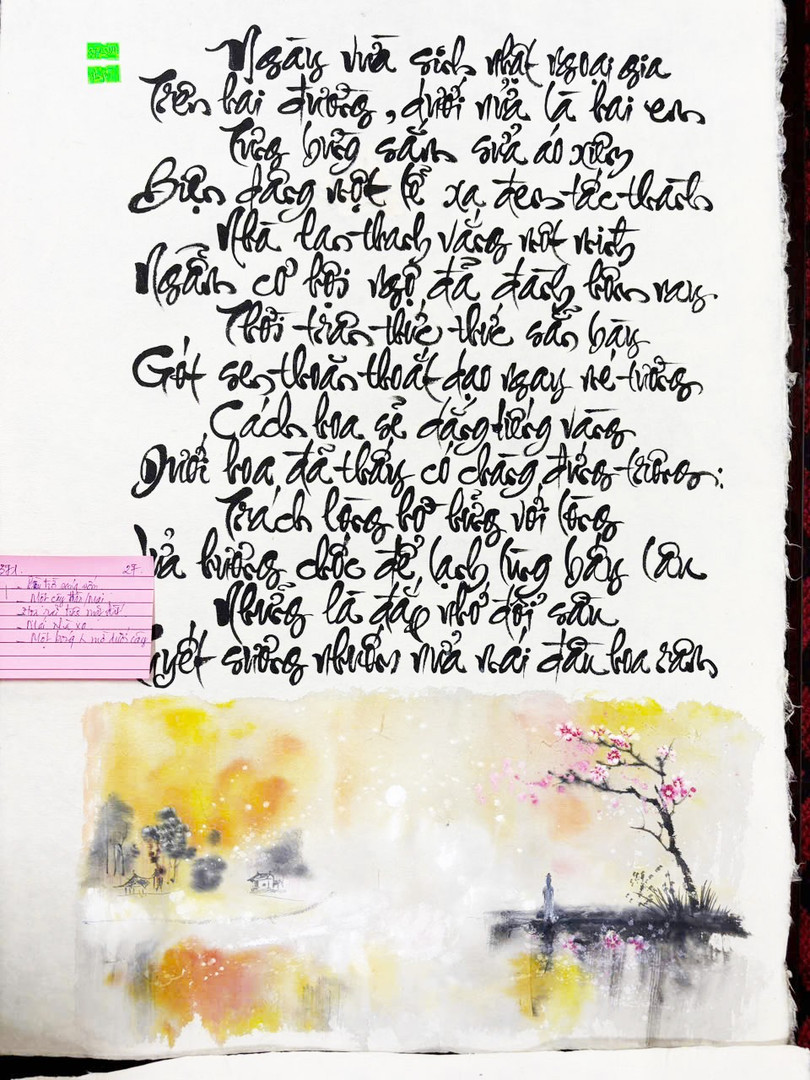 Ngày vừa sinh nhật ngoại gia
Trên hai đường, dưới nữa là hai em
Tưng bừng sắm sửa áo xiêm
Biện dâng một lễ xa đem tấc thành
Nhà lan thanh vắng một mình
Ngẫm cơ hội ngộ đã đành hôm nay.
Thời trân thức thức sẵn bày
Gót sen thoăn thoắt dạo ngay mé tường
Cách hoa sẽ dặng tiếng vàng
Dưới hoa đã thấy có chàng đứng trông:
Trách lòng hờ hững với lòng
Lửa hương chốc để lạnh lùng bấy lâu
Những là đắp nhớ đổi sầu
Tuyết sương nhuốm nửa mái đầu hoa râm
371. 27.
- Một cây
- Mái nhà xa
- Một bóng mờ dưới cây